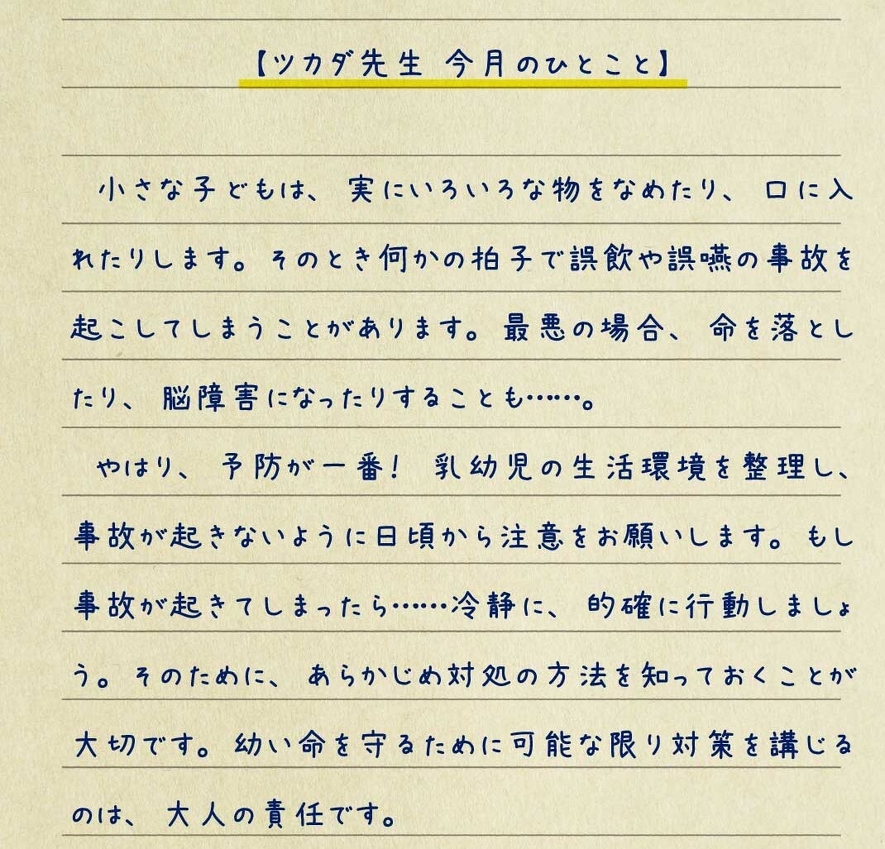 【ツカダ先生 今月のひとこと】
小さな子どもは、実にいろいろな物をなめたり、口に入
れたりします。そのとき何かの拍子で誤飲や誤嚥の事故を
起こしてしまうことがあります。最悪の場合、命を落とし
たり、脳障害になったりすることも……。
やはり、予防が一番！ 乳幼児の生活環境を整理し、
事故が起きないように日頃から注意をお願いします。もし
事故が起きてしまったら……冷静に、的確に行動しましょ
う。そのために、あらかじめ対処の方法を知っておくことが
大切です。幼い命を守るために可能な限り対策を講じる
のは、大人の責任です。